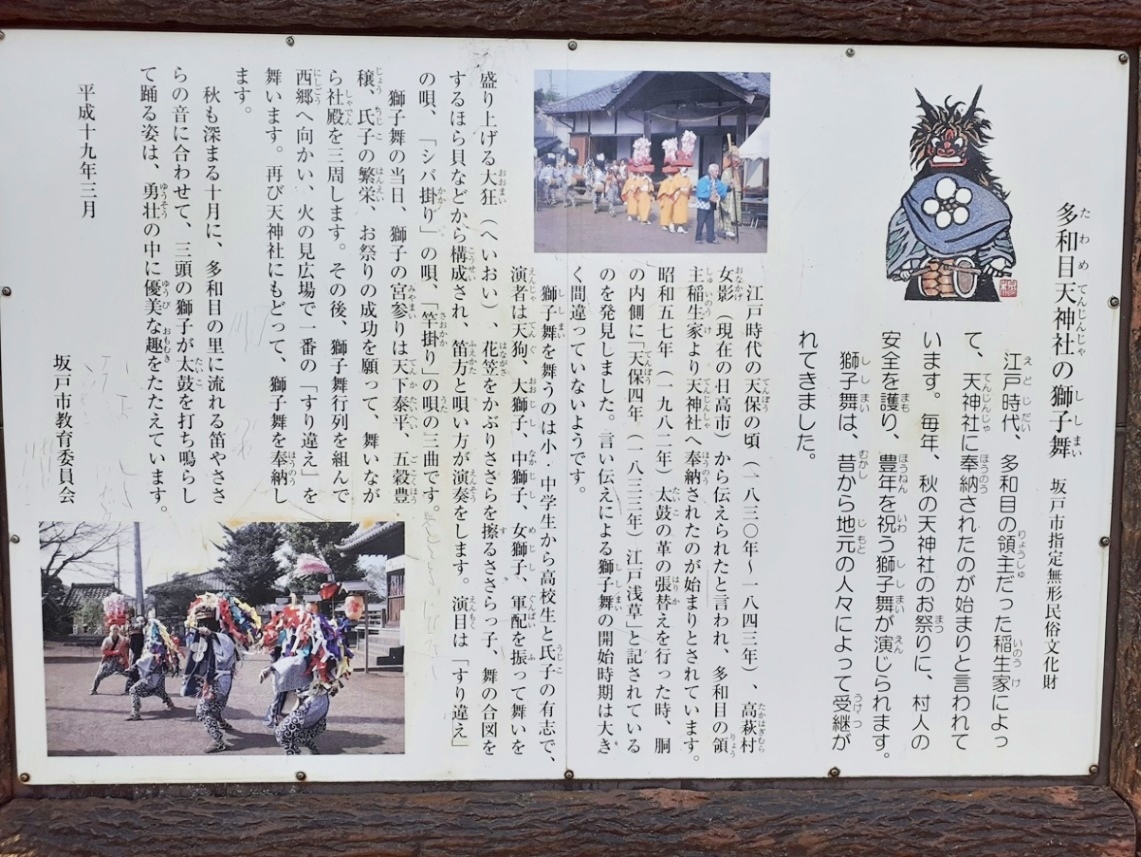 多和目天神社の獅子舞　坂戸市指定無形民俗文化財
江戸時代、多和目の領主だった稲生家によっ
て、天神社に奉納されたのが始まりと言われて
います。毎年、秋の天神社のお祭りに、村人の
安全を護り、豊年を祝う獅子舞が演じられます。
獅子舞は、昔から地元の人々によって受継が
れてきました。
江戸時代の天保の頃（一八三〇年～一八四三年）、高萩村
女影（現在の日高市）から伝えられたと言われ、多和目の領
主稲生家より天神社へ奉納されたのが始まりとされています。
昭和五七年（一九八二年）太鼓の革の張替えを行った時、胴
の内側に「天保四年（一八三三年）江戸浅草」と記されている
のを発見しました。言い伝えによる獅子舞の開始時期は大き
く間違っていないようです。
獅子舞を舞うのは小・中学生から高校生と氏子の有志で、
演者は天狗、大獅子、中獅子、女獅子、軍配を振って舞いを
盛り上げる大狂（へいおい）、花笠をかぶりささらを擦るささらっ子、舞の合図を
するほら貝などから構成され、笛方と唄い方が演奏をします。演目は「すり違え」
の唄、「シバ掛り」の唄、「竿掛り」の唄の三曲です。
獅子舞の当日、獅子の宮参りは天下泰平、五穀豊
穣、氏子の繁栄、お祭りの成功を願って、舞いなが
ら社殿を三周します。その後、獅子舞行列を組んで
西郷へ向かい、火の見広場で一番の「すり違え」を
舞います。再び天神社にもどって、獅子舞を奉納し
ます。
秋も深まる十月に、多和目の里に流れる笛やささ
らの音に合わせて、三頭の獅子が太鼓を打ち鳴らし
て踊る姿は、勇壮の中に優美な趣をたたえています。
平成十九年三月
坂戸市教育委員会